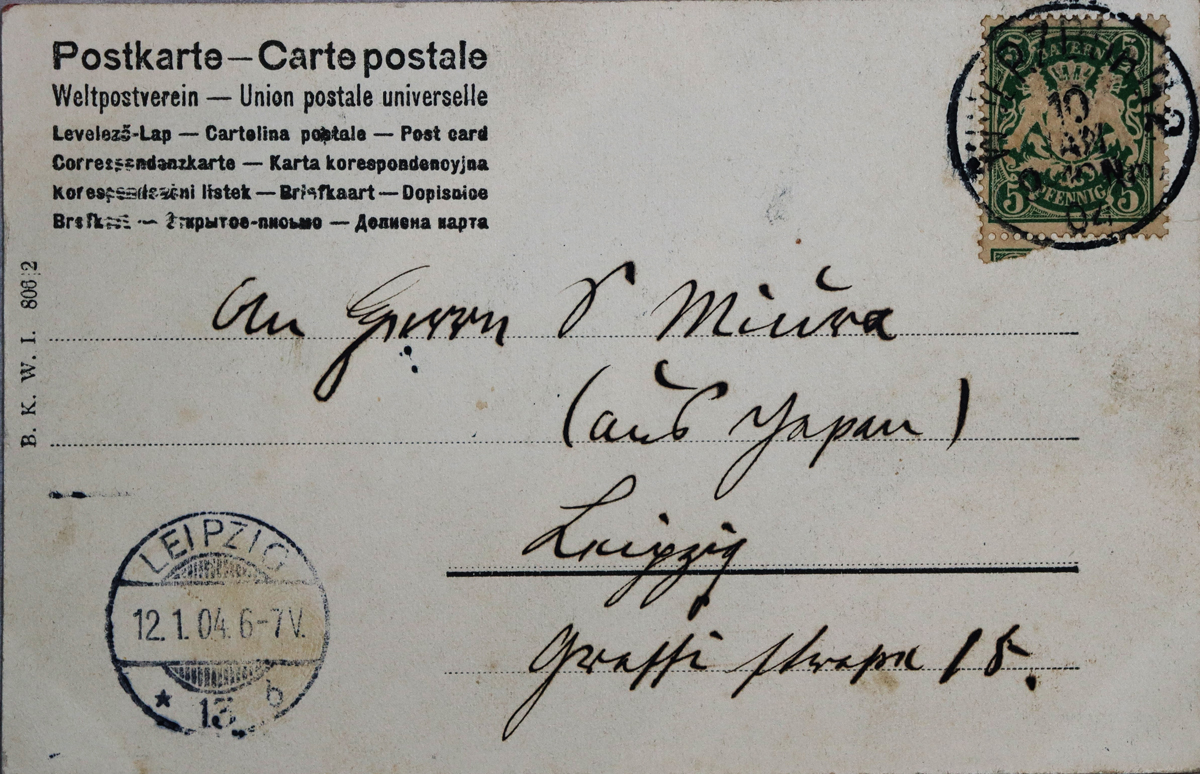 Postkarte — Carte postale
Weltpostverein — Union postale universelle
Levelező-Lap — Cartolina postale — Post card
Correspondenzkarte — Karta korespondencyjna
Korespondenční listek — Briefkaart — Dopisnice
— Открытое-письмо — Дописна карта
B. K. W. I. 806/2
BAYERN
5 5
PFENNIG
5 5
WÜRZBURG 2
10
JAN
Nm
04
An Herrn S Miura
(aus Japan)
Leipzig
Grassi strasse 18.
LEIPZIG
12.1.04. 6-7V.
* 13 b